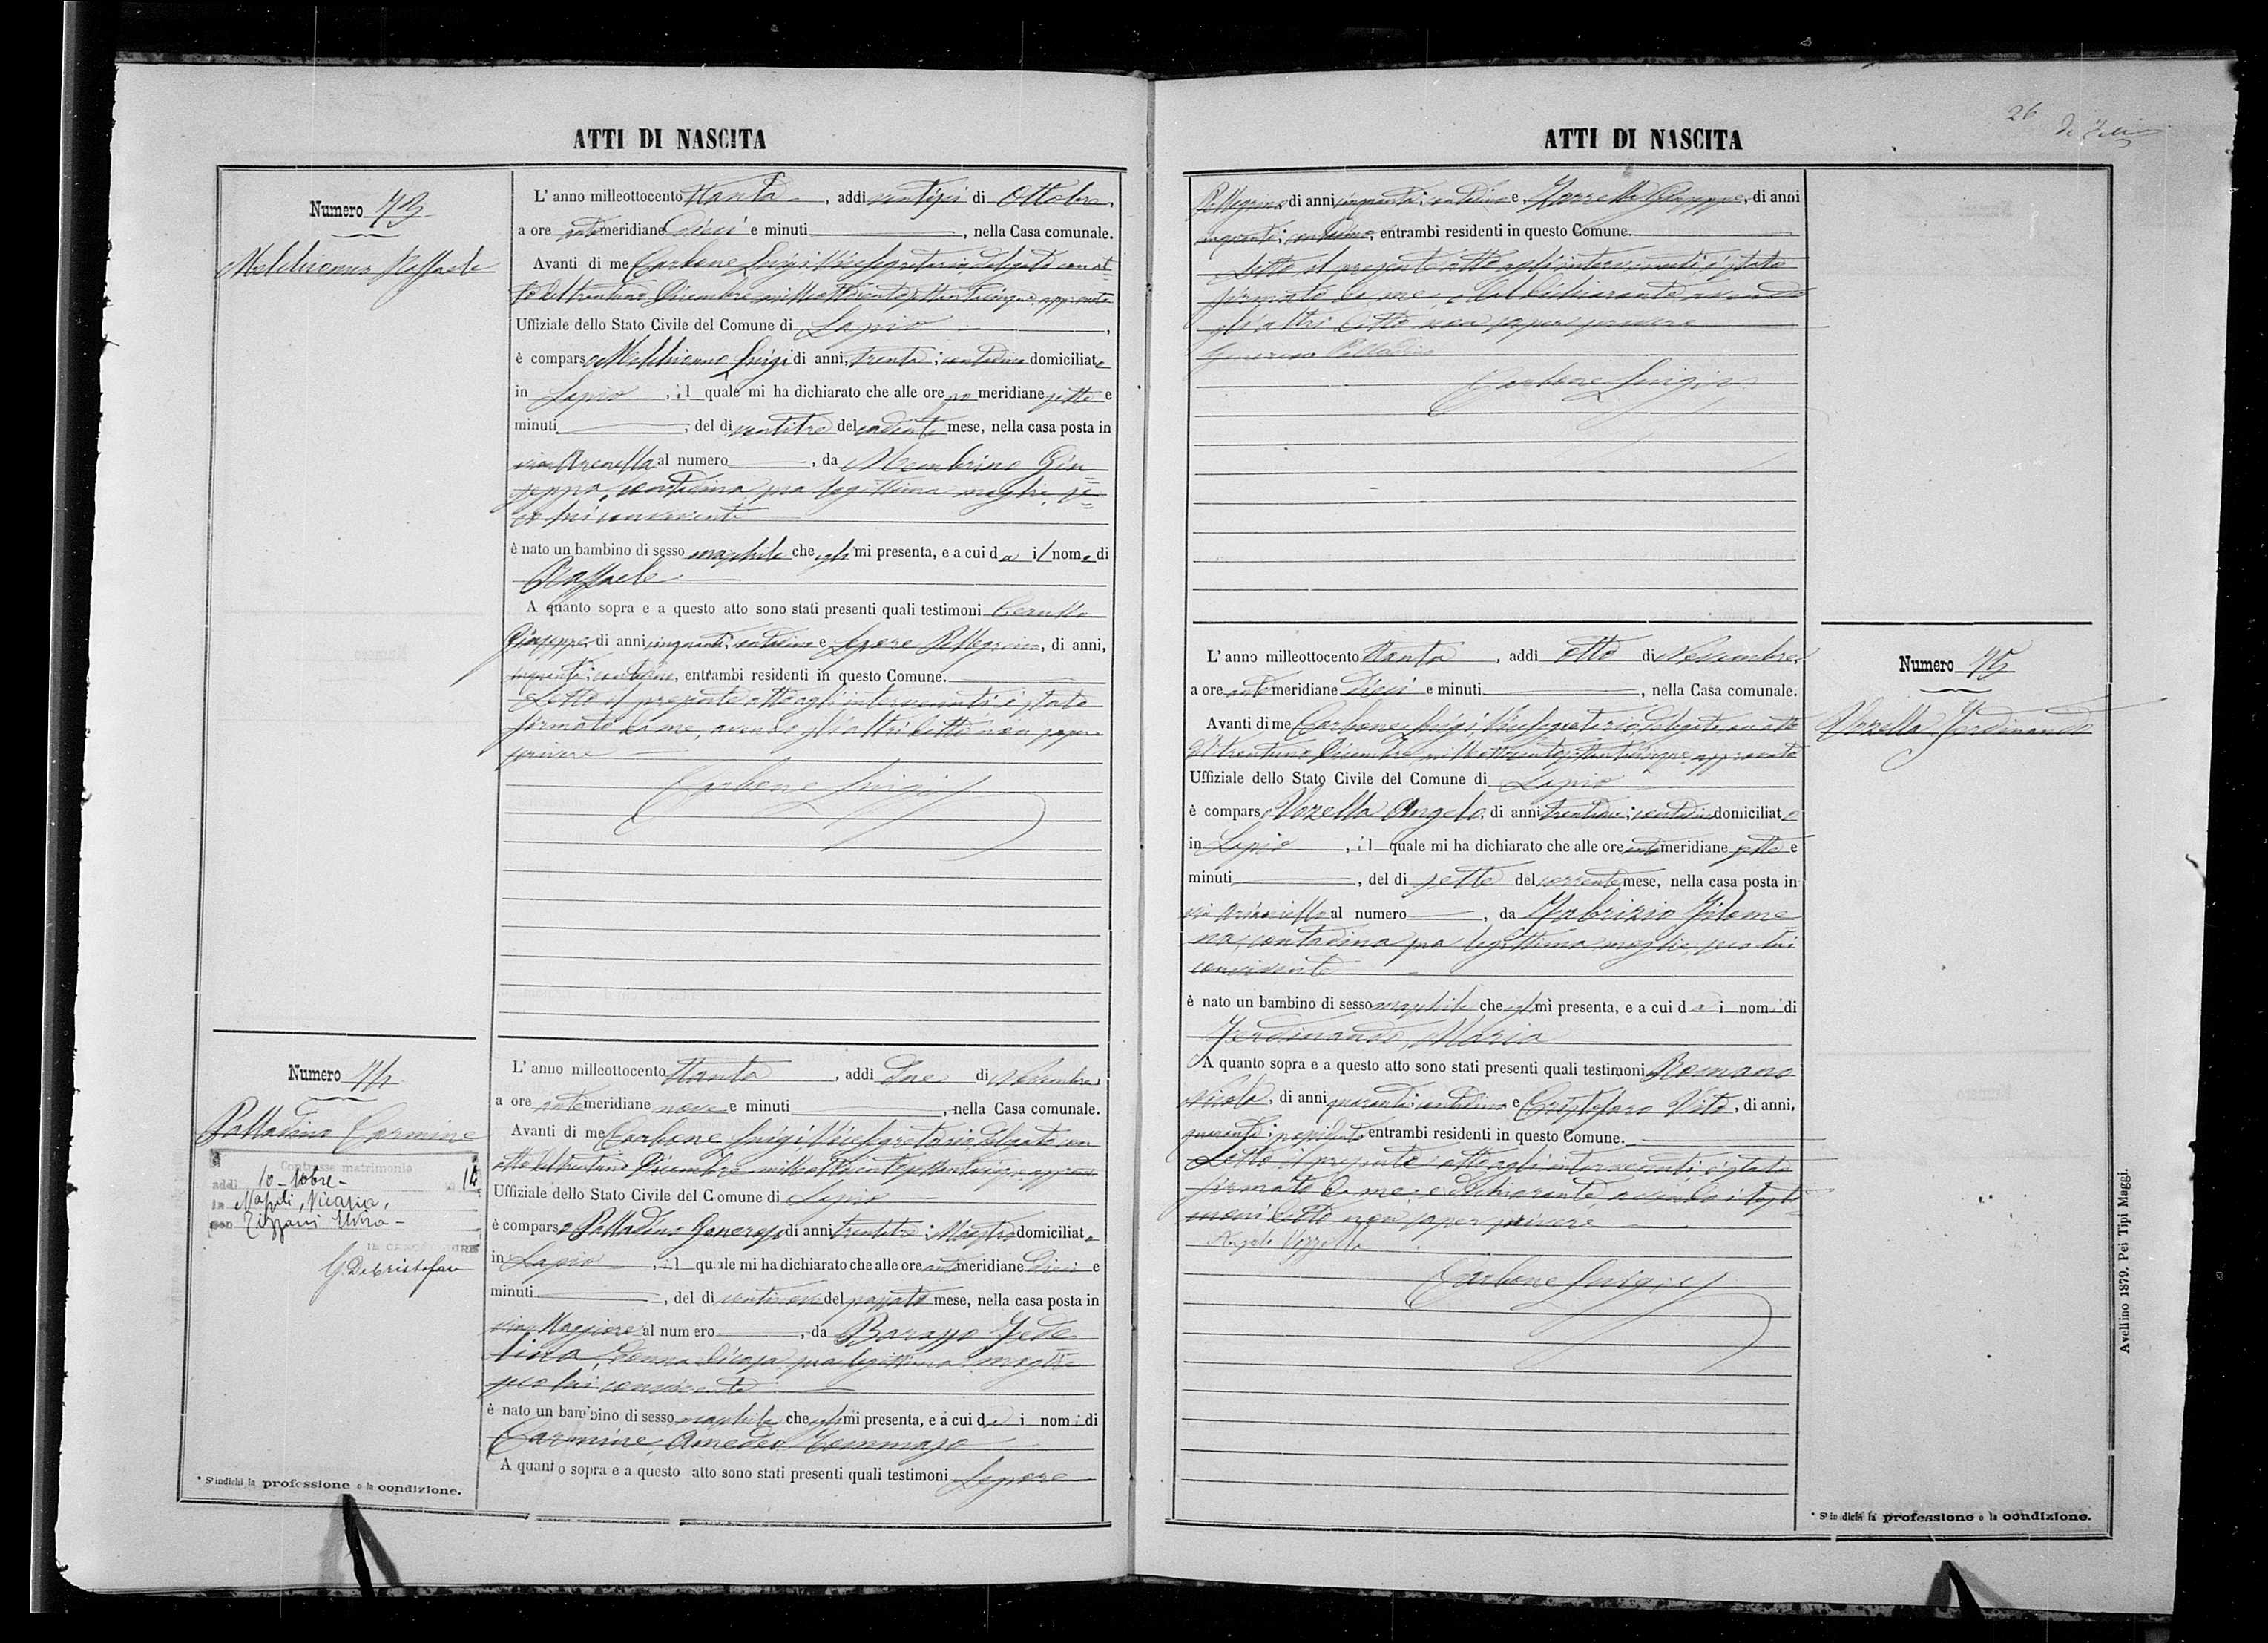 ATTI DI NASCITA
Numero 73
Melchionno Raffaele
L' anno milleottocento ottanta, addi ventisei di Ottobre,
a ore antimeridiane Dieci e minuti, nella Casa comunale.
Avanti di me Carbone Luigi Vicesegretario, delegato con at=
to del trentuno Dicembre milleottocentosettantacinque, approvato
Uffiziale dello Stato Civile del Comune di Lapio,
è comparso Melchionno Luigi di anni, trenta; contadino domiciliato
in Lapio, il quale mi ha dichiarato che alle ore po meridiane sette e
minuti, del di ventitre del cadente mese, nella casa posta in
via Arenella al numero, da Membrino Giu=
seppa, contadina sua legittima moglie, se=
co lui convivente
è nato un bambino di sesso maschile che egli mi presenta, e a cui da il nome di
Raffaele
A quanto sopra e a questo atto sono stati presenti quali testimoni Cerullo
Giuseppe, di anni cinquanta; contadino e Lepore Pellegrino, di anni,
cinquanta; contadino, entrambi residenti in questo Comune.
Letto il presente atto agli intervenuti è stato
firmato da me, avendo gli altri detto non saper
scrivere
Carbone Luigi
Numero 74
Palladino Carmine
Contrasse matrimonio
addì 10 - 10bre - 14
in Napoli, Vicaria,
con Tizzani Elvira -
G. DeCristofaro
L' anno milleottocento ottanta, addi Due di Novembre,
a ore antimeridiane nove e minuti, nella Casa comunale.
Avanti di me Carbone Luigi Vicesegretario delegato con
atto del trentuno Dicembre milleottocentosettantacinque, approvato
Uffiziale dello Stato Civile del Comune di Lapio
è comparso Palladino Generoso di anni trentatre; Maestro domiciliato
in Lapio, il quale mi ha dichiarato che alle ore antimeridiane Dieci e
minuti, del di del passato mese, nella casa posta in
via Maggiore al numero, da Barasso Fede
lina, Donna di casa sua legittima moglie
seco lui convivente
è nato un bambino di sesso maschile che egli mi presenta, e a cui da i nomi di
Carmine, Amedeo Tommaso
A quanto sopra e a questo atto sono stati presenti quali testimoni Lepore
* S'indichi la professione o la condizione.
26
ATTI DI NASCITA
Pellegrino di anni cinquanta; contadino e Giuseppe, di anni
cinquanta; contadino, entrambi residenti in questo Comune.
Letto il presente atto agli intervenuti è stato
firmato da me e dal dichiarante avendo
gli altri detto non sapere scrivere
Generoso Palladino
Carbone Luigi
Numero 75
Vozella Ferdinando
L' anno milleottocento ottanta, addi otto di Novembre,
a ore antimeridiane Dieci e minuti, nella Casa comunale.
Avanti di me Carbone Luigi Vicesegretario, delegato con atto
del trentuno Dicembre milleottocentosettantacinque, approvato
Uffiziale dello Stato Civile del Comune di Lapio
è comparso Vozella Angelo, di anni; contadino domiciliato
in Lapio, il quale mi ha dichiarato che alle ore antimeridiane sette e
minuti, del di sette del corrente mese, nella casa posta in
via al numero, da Fabrizio Filome
na, contadina sua legittima moglie, seco lui
convivente
è nato un bambino di sesso maschile che egli mì presenta, e a cui da i nomi di
Ferdinando, Maria
A quanto sopra e a questo atto sono stati presenti quali testimoni Romano
Nicola, di anni quaranta; contadino e Cristofaro Vito, di anni,
quaranta; possidente entrambi residenti in questo Comune.
Letto il presente atto agli intervenuti, è stato
firmato da me e dichiarante avendo i testi=
moni detto non saper scrivere
Angelo Vozzella
Carbone Luigi
* S'indichi la professione o la condizione.
Avellino 1879, Pei Tipi Maggi.